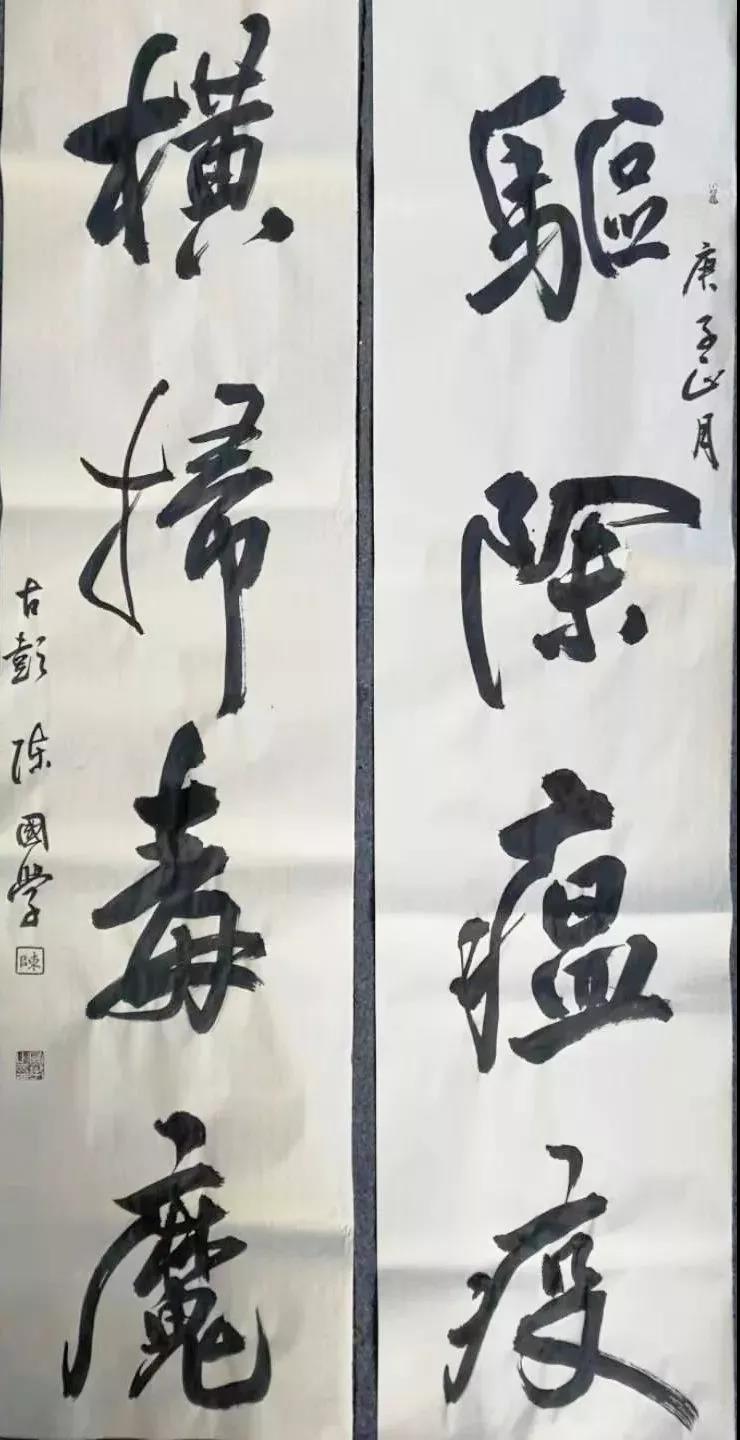 庚子正月
驅除瘟疫
橫掃毒魔
古彭陳國學
陳